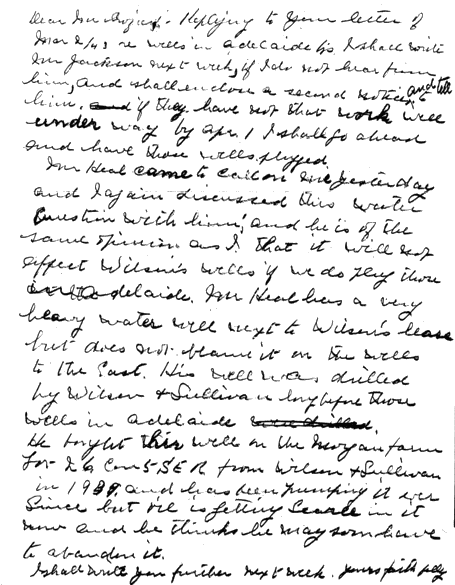 Dear Mr : Replying to your letter of
Mar 2/43 re wells in Adelaide Tp I shall write
Mr Jackson next week, if I do not hear from
him, and shall enclose a second notice, and tell
him, if they have not that work well
under way by Apr 1 I shall go ahead
and have those wells plugged.
Mr Heal came to call on me yesterday
and I again discussed this water
question with him, and he is of the
same opinion as I that it will not
affect Wilson's wells if we do plug those
in Adelaide. Mr Heal has a very
heavy water well next to Wilson's lease
but does not blame it on the wells
to the East. His well was drilled
by Wilson & Sullivan long before those
wells in Adelaide were drilled.
He bought this well on the Morgan farm
Lot 26 Con 5 SER from Wilson & Sullivan
in 1939, and has been pumping it ever
since but oil is getting scarce in it
now and he thinks he may soon have
to abandon it.
I shall write you further next week. yours faithfully